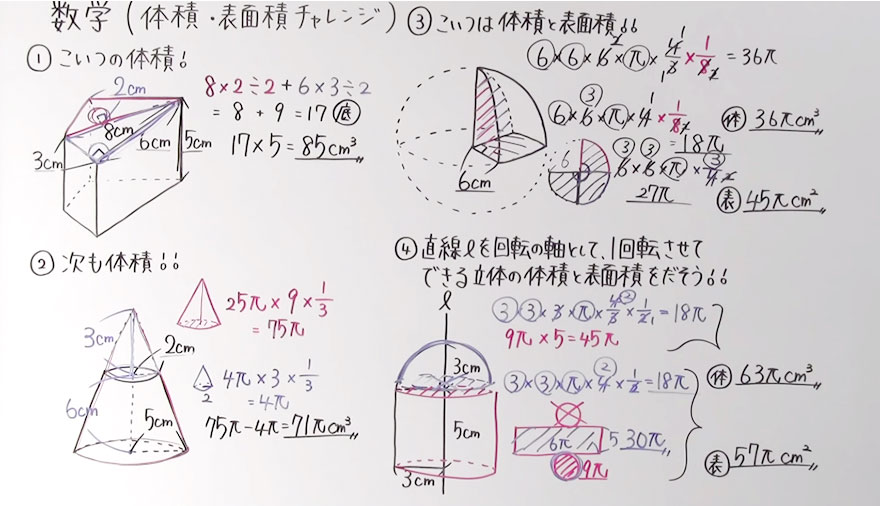 数学(体積・表面積チャレンジ)
① こいつの体積!
2cm
8cm
6cm
5cm
3cm
8×2÷2+6×3÷2
= 8 + 9 = 17 底
17×5=85cm³
② 次も体積!!
3cm
2cm
6cm
5cm
25π×9×1/3
= 75π
2
4π×3×1/3
=4π
75π-4π=71πcm³
③ こいつは体積と表面積!!
6×6×6×π×4/3×1/8=36π
2
1
1
2
6cm
6×6×π×4×1/8
3
1
2
=18π
体 36πcm³
6
6×6×π×3/4
3 3
2
27π
表 45πcm²
④ 直線ℓを回転の軸として、1回転させて
できる立体の体積と表面積をだそう!!
ℓ
3cm
5cm
3cm
3×3×3×π×4/3×1/2=18π
2
1
9π×5=45π
体 63πcm³
3×3×π×4×1/2=18π
2
6π
5
30π
9π
表 57πcm²